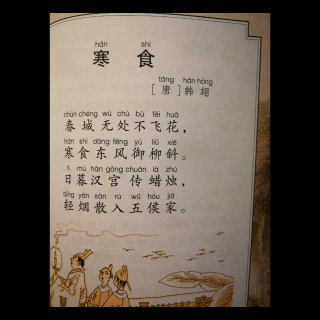 hán shí
寒 食
táng hán hóng
[唐]韩 翃
chūn chéng wú chù bù fēi huā
春城无处不飞花，
hán shí dōng fēng yù liǔ xié
寒食东风御柳斜。
rì mù hàn gōng chuán là zhú
日暮汉宫传蜡烛，
qīng yān sàn rù wǔ hóu jiā
轻烟散入五侯家。